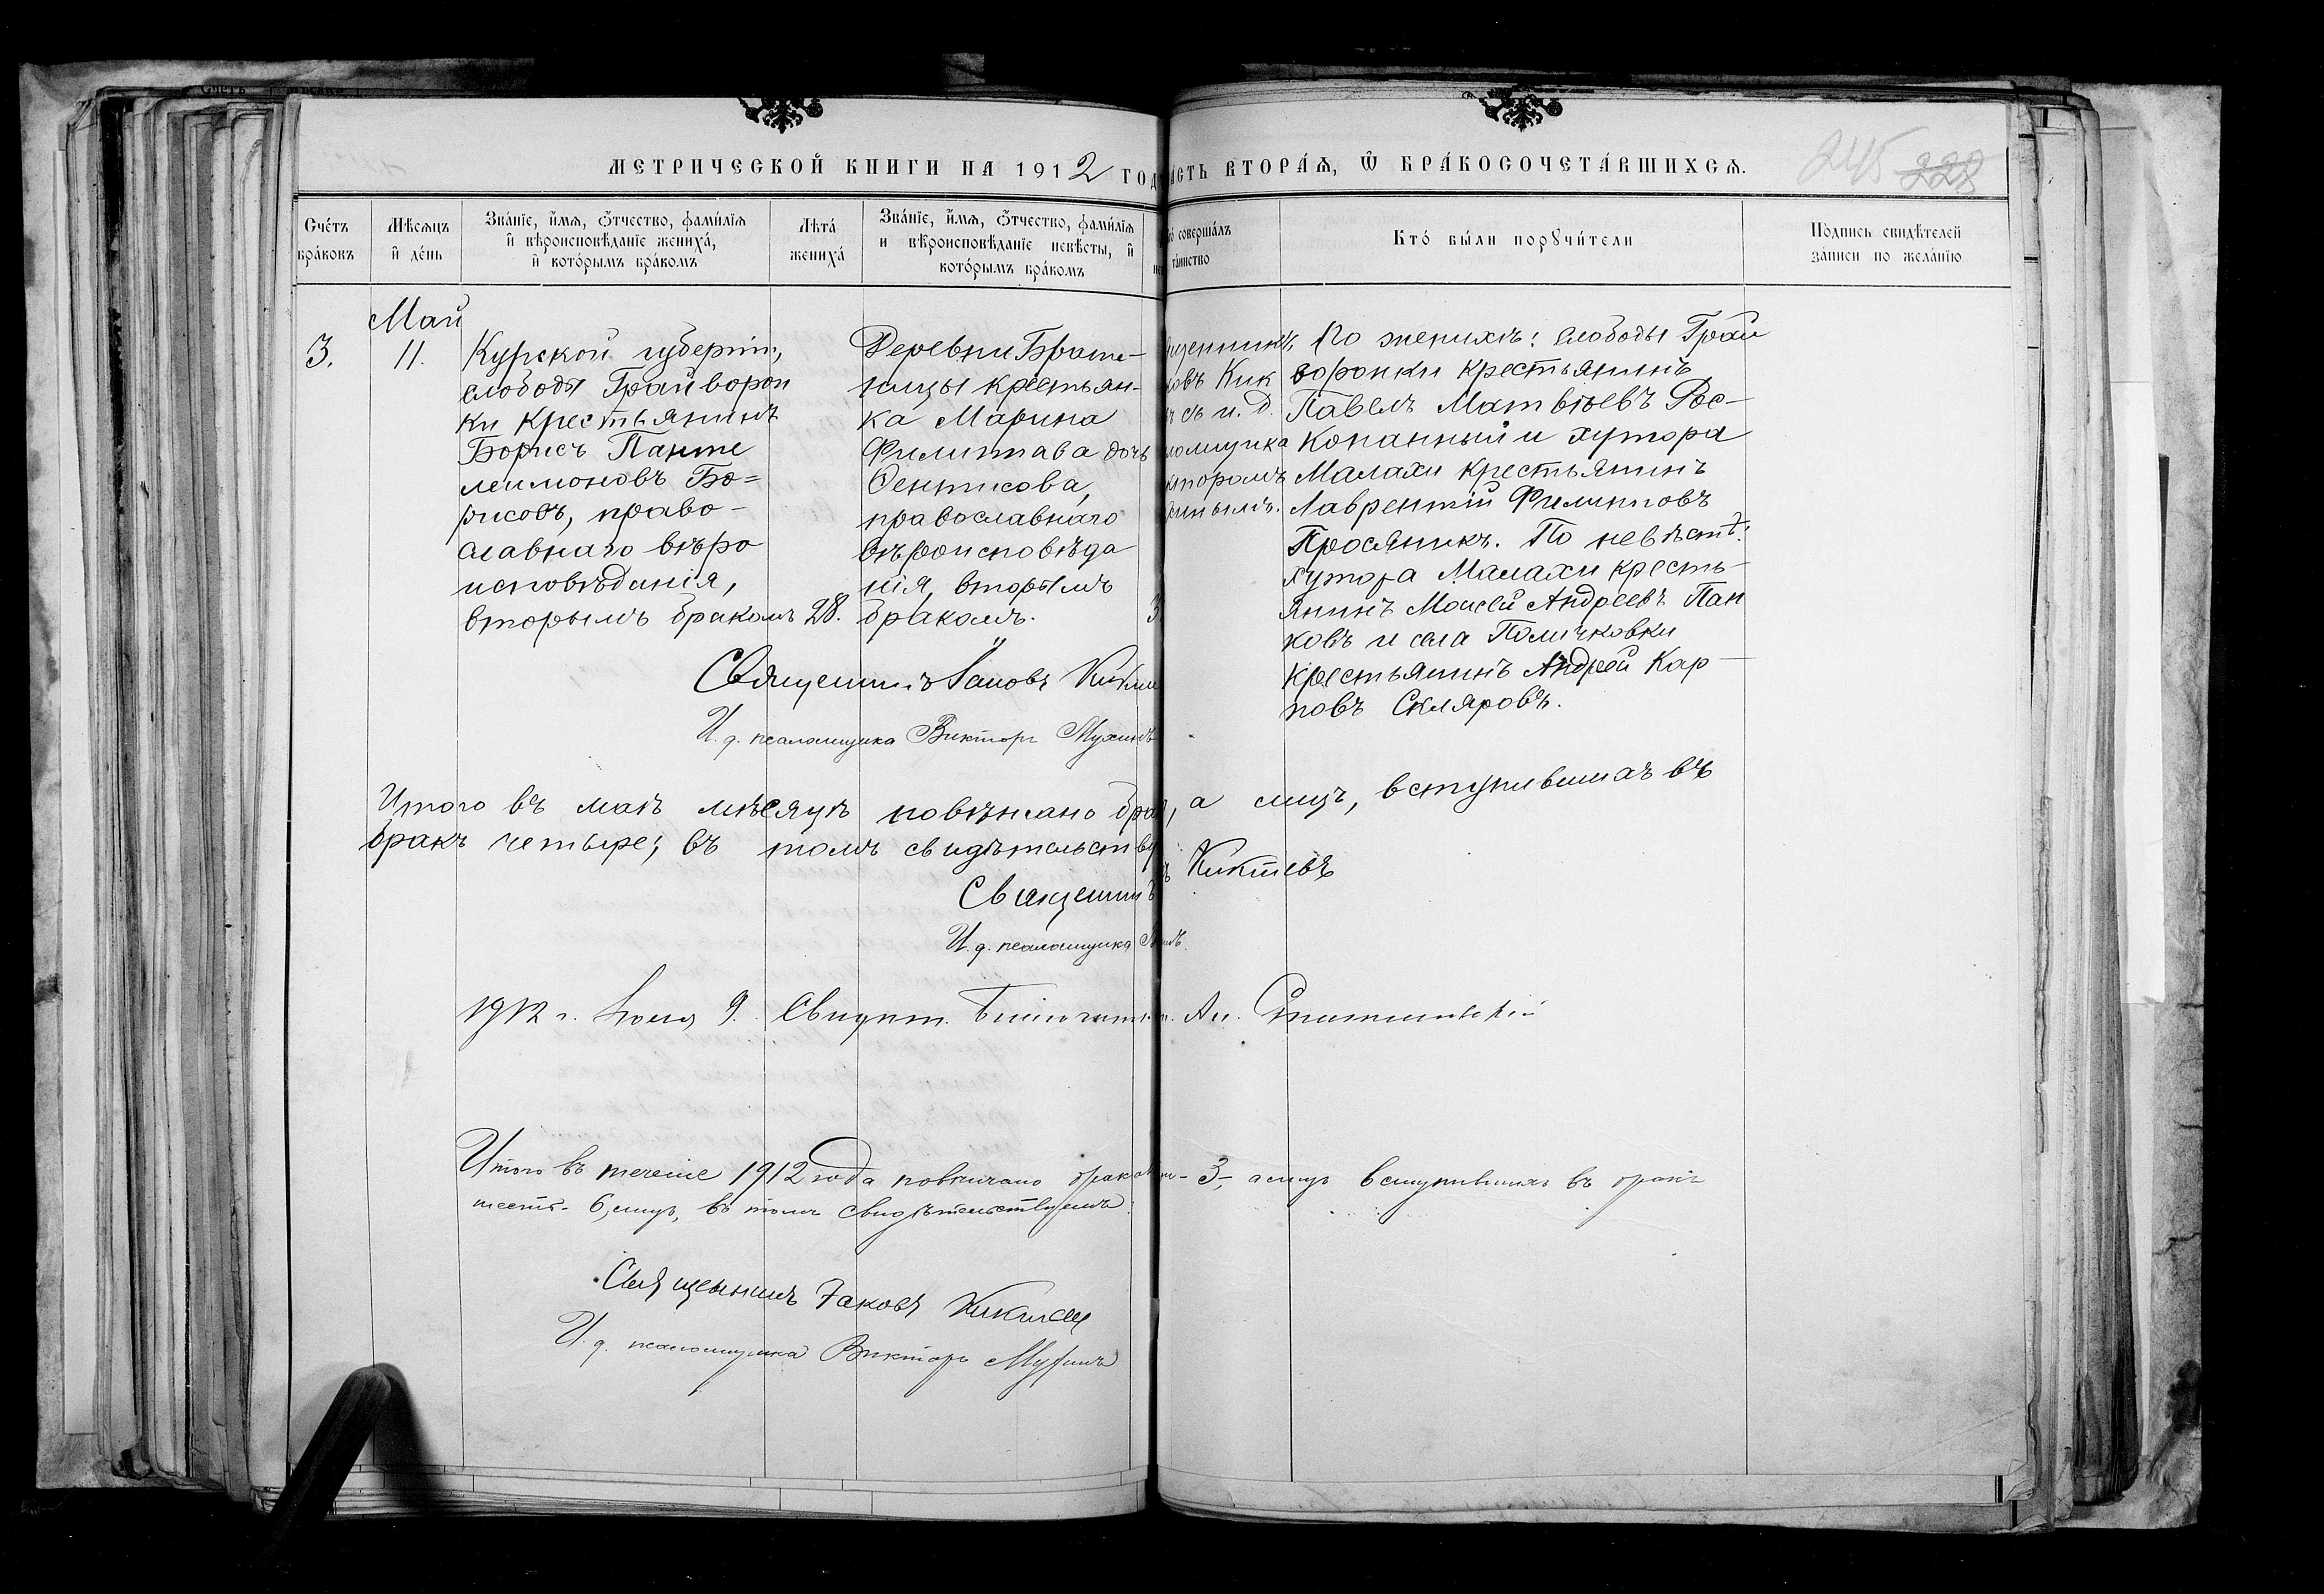 МЕТРИЧЕСКОЙ КНИГИ НА 1912 ГОД
АСТЬ ВТОРАѦ, Ѿ БРАКОСОЧЕТАВШИХСѦ.
245 228
Счетъ браковъ
Мѣсяцъ и день
Званіе, имя, отчество, фамилія и вѣроисповѣданіе жениха, и которымъ бракомъ
Лѣта жениха
Званіе, имя, отчество, фамилія и вѣроисповѣданіе невѣсты, и которымъ бракомъ
совершалъ таинство
Кто были поручители
Подпись свидѣтелей записи по желанію
3.
Май
11.
Курской губерніи,
слободы Грайворон
ки крестьянинъ
Борисъ Панте
леимоновъ Бо=
рисовъ, право-
славнаго вѣро
исповѣданія,
вторымъ бракомъ
28.
Деревни
ницы крестьян-
ка Марина
Филиппова дочь
православнаго
вѣроисповѣда
нія, вторымъ
бракомъ.
3
щенникъ
ковъ Кик
съ и. д.
ломщика
кторомъ
По женихѣ: слободы Грай
воронки крестьянинъ
Павелъ Матвѣевъ Рос-
копанный и хутора
Малахи крестьянинъ
Лаврентій Филипповъ
Просяникъ. По невѣстѣ:
хутора Малахи кресть-
янинъ Моисей Андреевъ Пан
ковъ и села Поличковки
крестьянинъ Андрей Кар-
повъ Скляровъ.
Священникъ Іаковъ
И. д. псаломщика Викторъ Мухинъ
Итого въ маѣ мѣсяцѣ повѣнчано бра, а лицъ, вступившихъ въ
бракъ четыре; въ томъ свидѣтельству
Священникъ Киктевъ
И. д. псаломщика
1912 г. Іюня 9.
Итого въ теченіе 1912 года повѣнчано браковъ 3, а лицъ вступившихъ въ бракъ
шесть 6, лицъ, въ томъ свидѣтельствуемъ:
Священникъ Іаковъ
И. д. псаломщика Викторъ Мухинъ